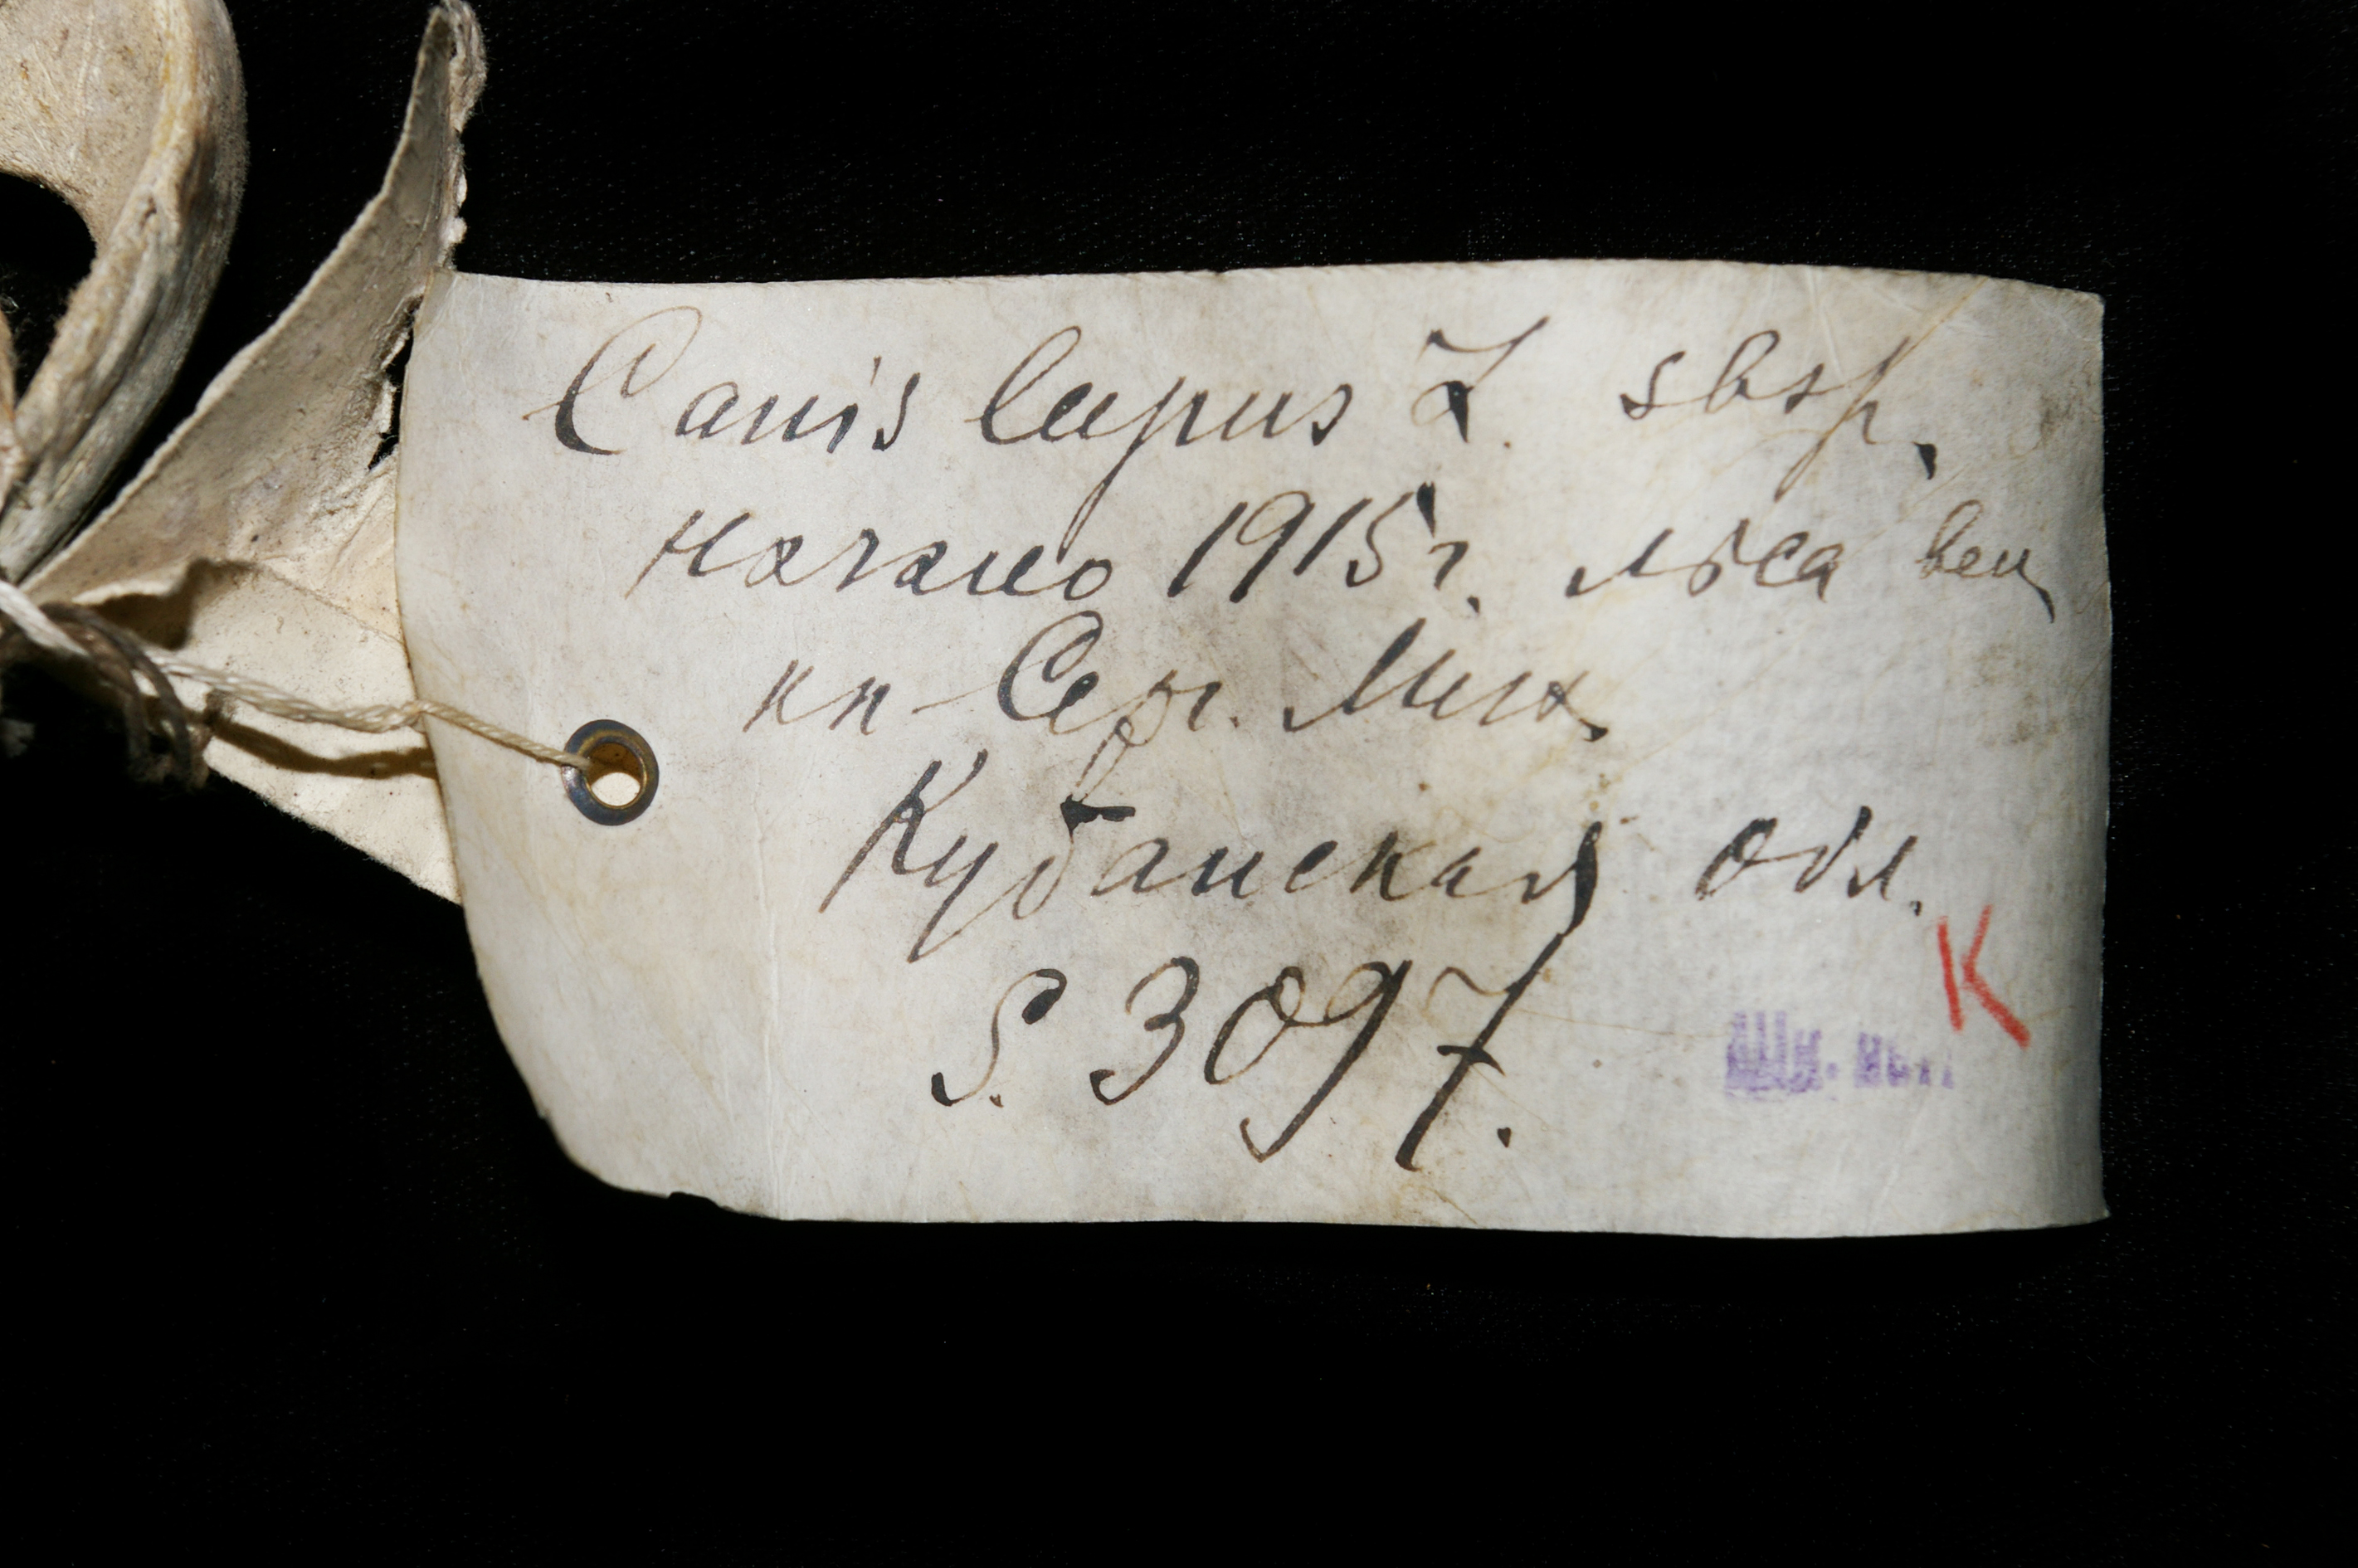 Canis lupus L. sbsp.
начало 1915 г. лѣса вел.
кн. Серг. Мих.
Кубанская обл.
К
S. 3097.